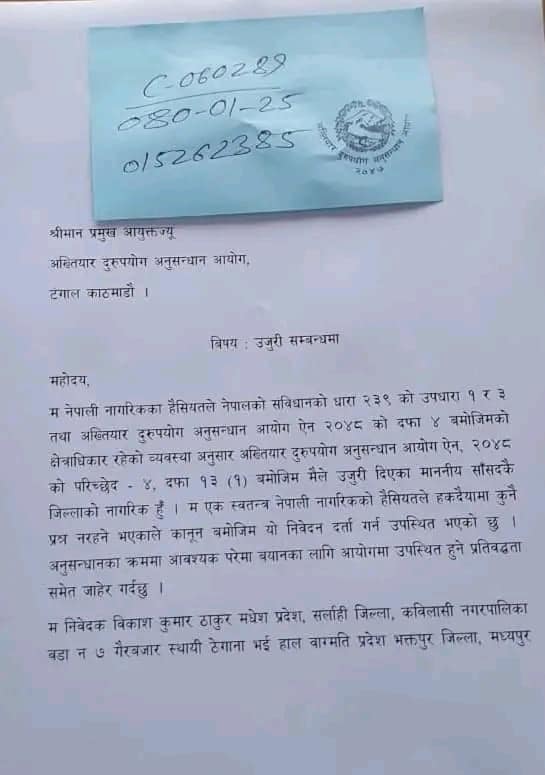 C-060289
080-01-25
015262385
अख्तियार दुरुपयोग अनुसन्धान आयोग
२०४७
श्रीमान प्रमुख आयुक्तज्यू
अख्तियार दुरुपयोग अनुसन्धान आयोग,
टंगाल काठमाडौ ।
विषय : उजुरी सम्बन्धमा
महोदय,
म नेपाली नागरिकका हैसियतले नेपालको संविधानको धारा २३९ को उपधारा १ र ३
तथा अख्तियार दुरुपयोग अनुसन्धान आयोग ऐन २०४८ को दफा ४ बमोजिमको
क्षेत्राधिकार रहेको व्यवस्था अनुसार अख्तियार दुरुपयोग अनुसन्धान आयोग ऐन, २०४८
को परिच्छेद - ४, दफा १३ (१) बमोजिम मैले उजुरी दिएका माननीय साँसदकै
जिल्लाको नागरिक हुँ । म एक स्वतन्त्र नेपाली नागरिकको हैसियतले हकदैयामा कुनै
प्रश्न नरहने भएकाले कानून बमोजिम यो निवेदन दर्ता गर्न उपस्थित भएको छु ।
अनुसन्धानका क्रममा आबश्यक परेमा बयानका लागि आयोगमा उपस्थित हुने प्रतिवद्धता
समेत जाहेर गर्दछु ।
म निवेदक विकाश कुमार ठाकुर मधेश प्रदेश, सर्लाही जिल्ला, कविलासी नगरपालिका
वडा न ७ गैरबजार स्थायी ठेगाना भई हाल वाग्मति प्रदेश भक्तपुर जिल्ला, मध्यपुर